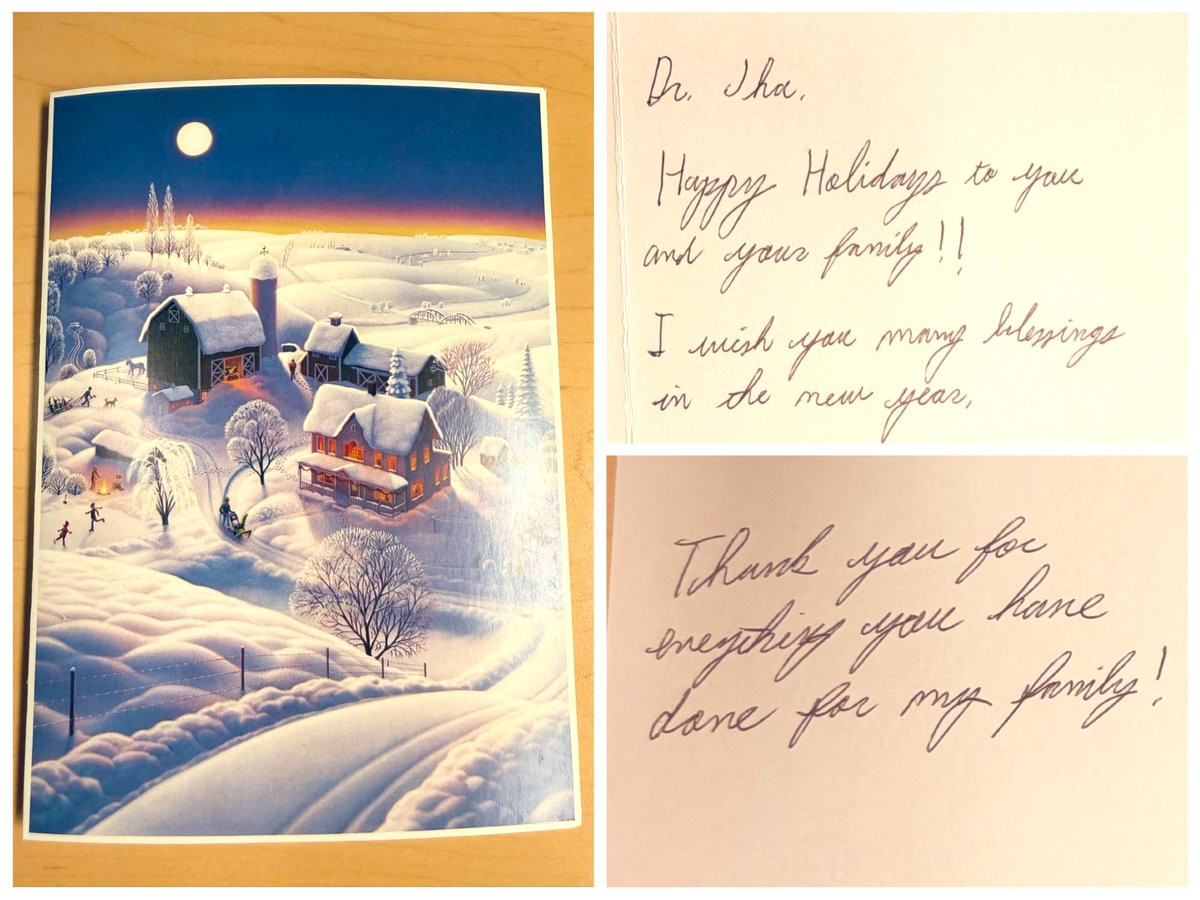 Dr. Jha,
Happy Holidays to you
and your family!!
I wish you many blessings
in the new year,
Thank you for
everything you have
done for my family!